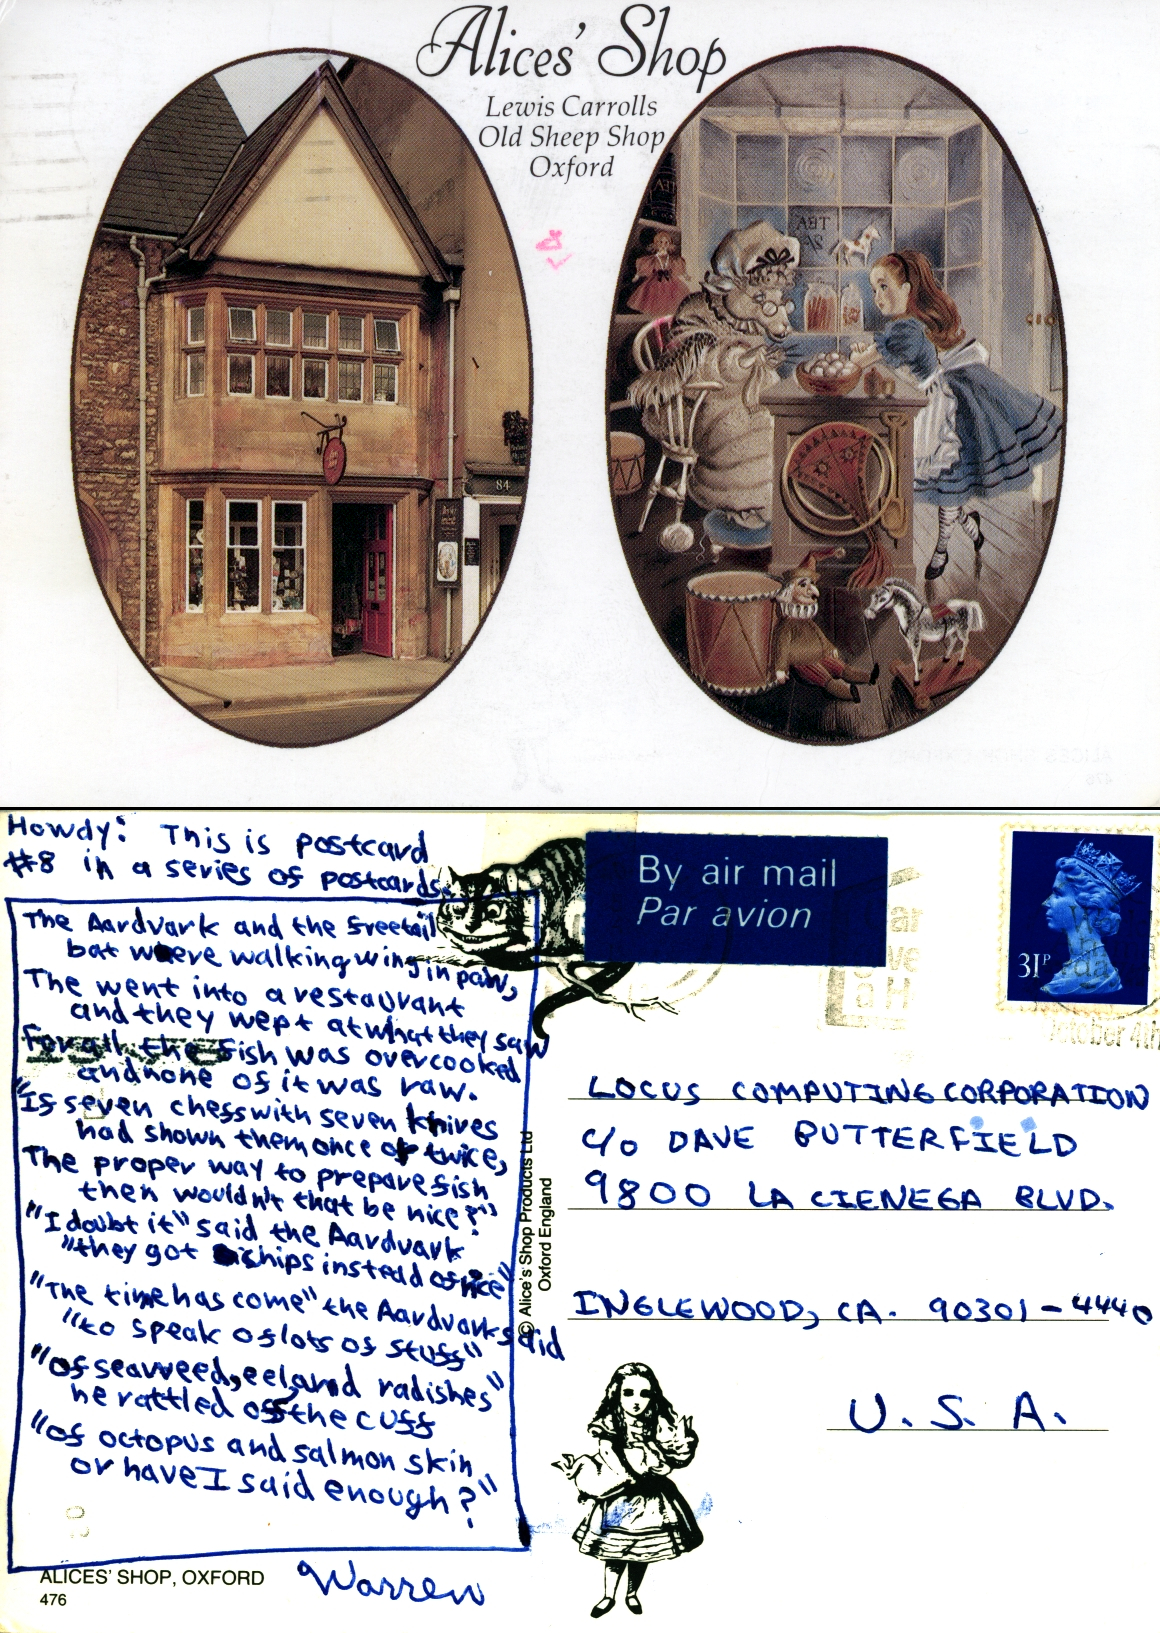 Alices' Shop
Lewis Carrolls
Old Sheep Shop
Oxford
TEA
84
Howdy: This is postcard
#8 in a series of postcards.
The Aardvark and the freetail
bat were walking wing in paw,
The went into a restaurant
and they wept at what they saw
For all the fish was overcooked
and none of it was raw.
"If seven chefs with seven knives
had shown them once or twice,
The proper way to prepare fish
then wouldn't that be nice?"
"I doubt it" said the Aardvark
"they got chips instead of rice"
"The time has come" the Aardvark said
"to speak of lots of stuff"
"of seaweed, eel, and radishes"
he rattled off the cuff
"of octopus and salmon skin
or have I said enough?"
Warren
ALICES' SHOP, OXFORD
476
© Alice's Shop Products Ltd
Oxford England
By air mail
Par avion
31P
October 4th
LOCUS COMPUTING CORPORATION
c/o DAVE BUTTERFIELD
9800 LA CIENEGA BLVD.
INGLEWOOD, CA. 90301-4440
U.S.A.